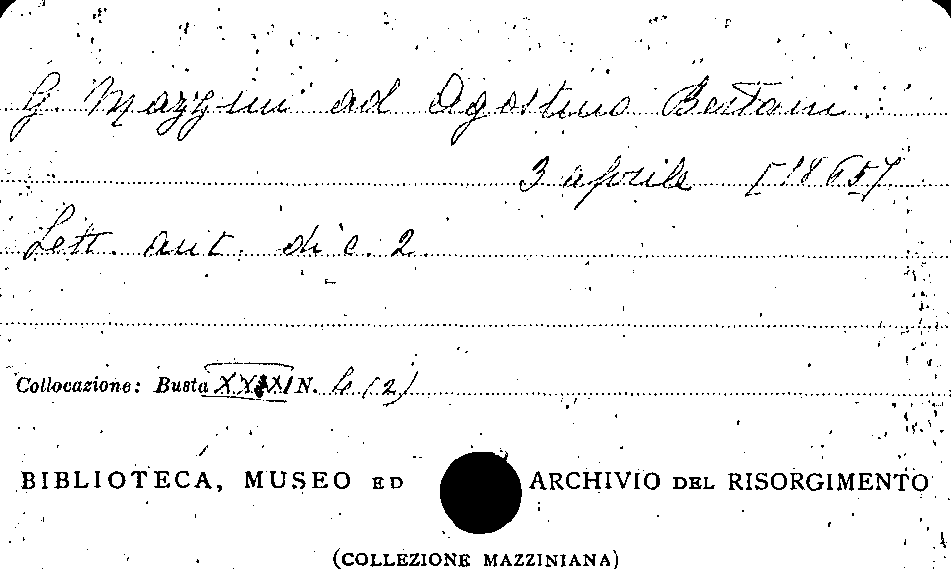 G. Mazzini ad Agostino Bertani
3 aprile [1865]
Lett. aut. di c. 2.
Collocazione: Busta N. 6 (2)
BIBLIOTECA, MUSEO ED ARCHIVIO DEL RISORGIMENTO
(COLLEZIONE MAZZINIANA)